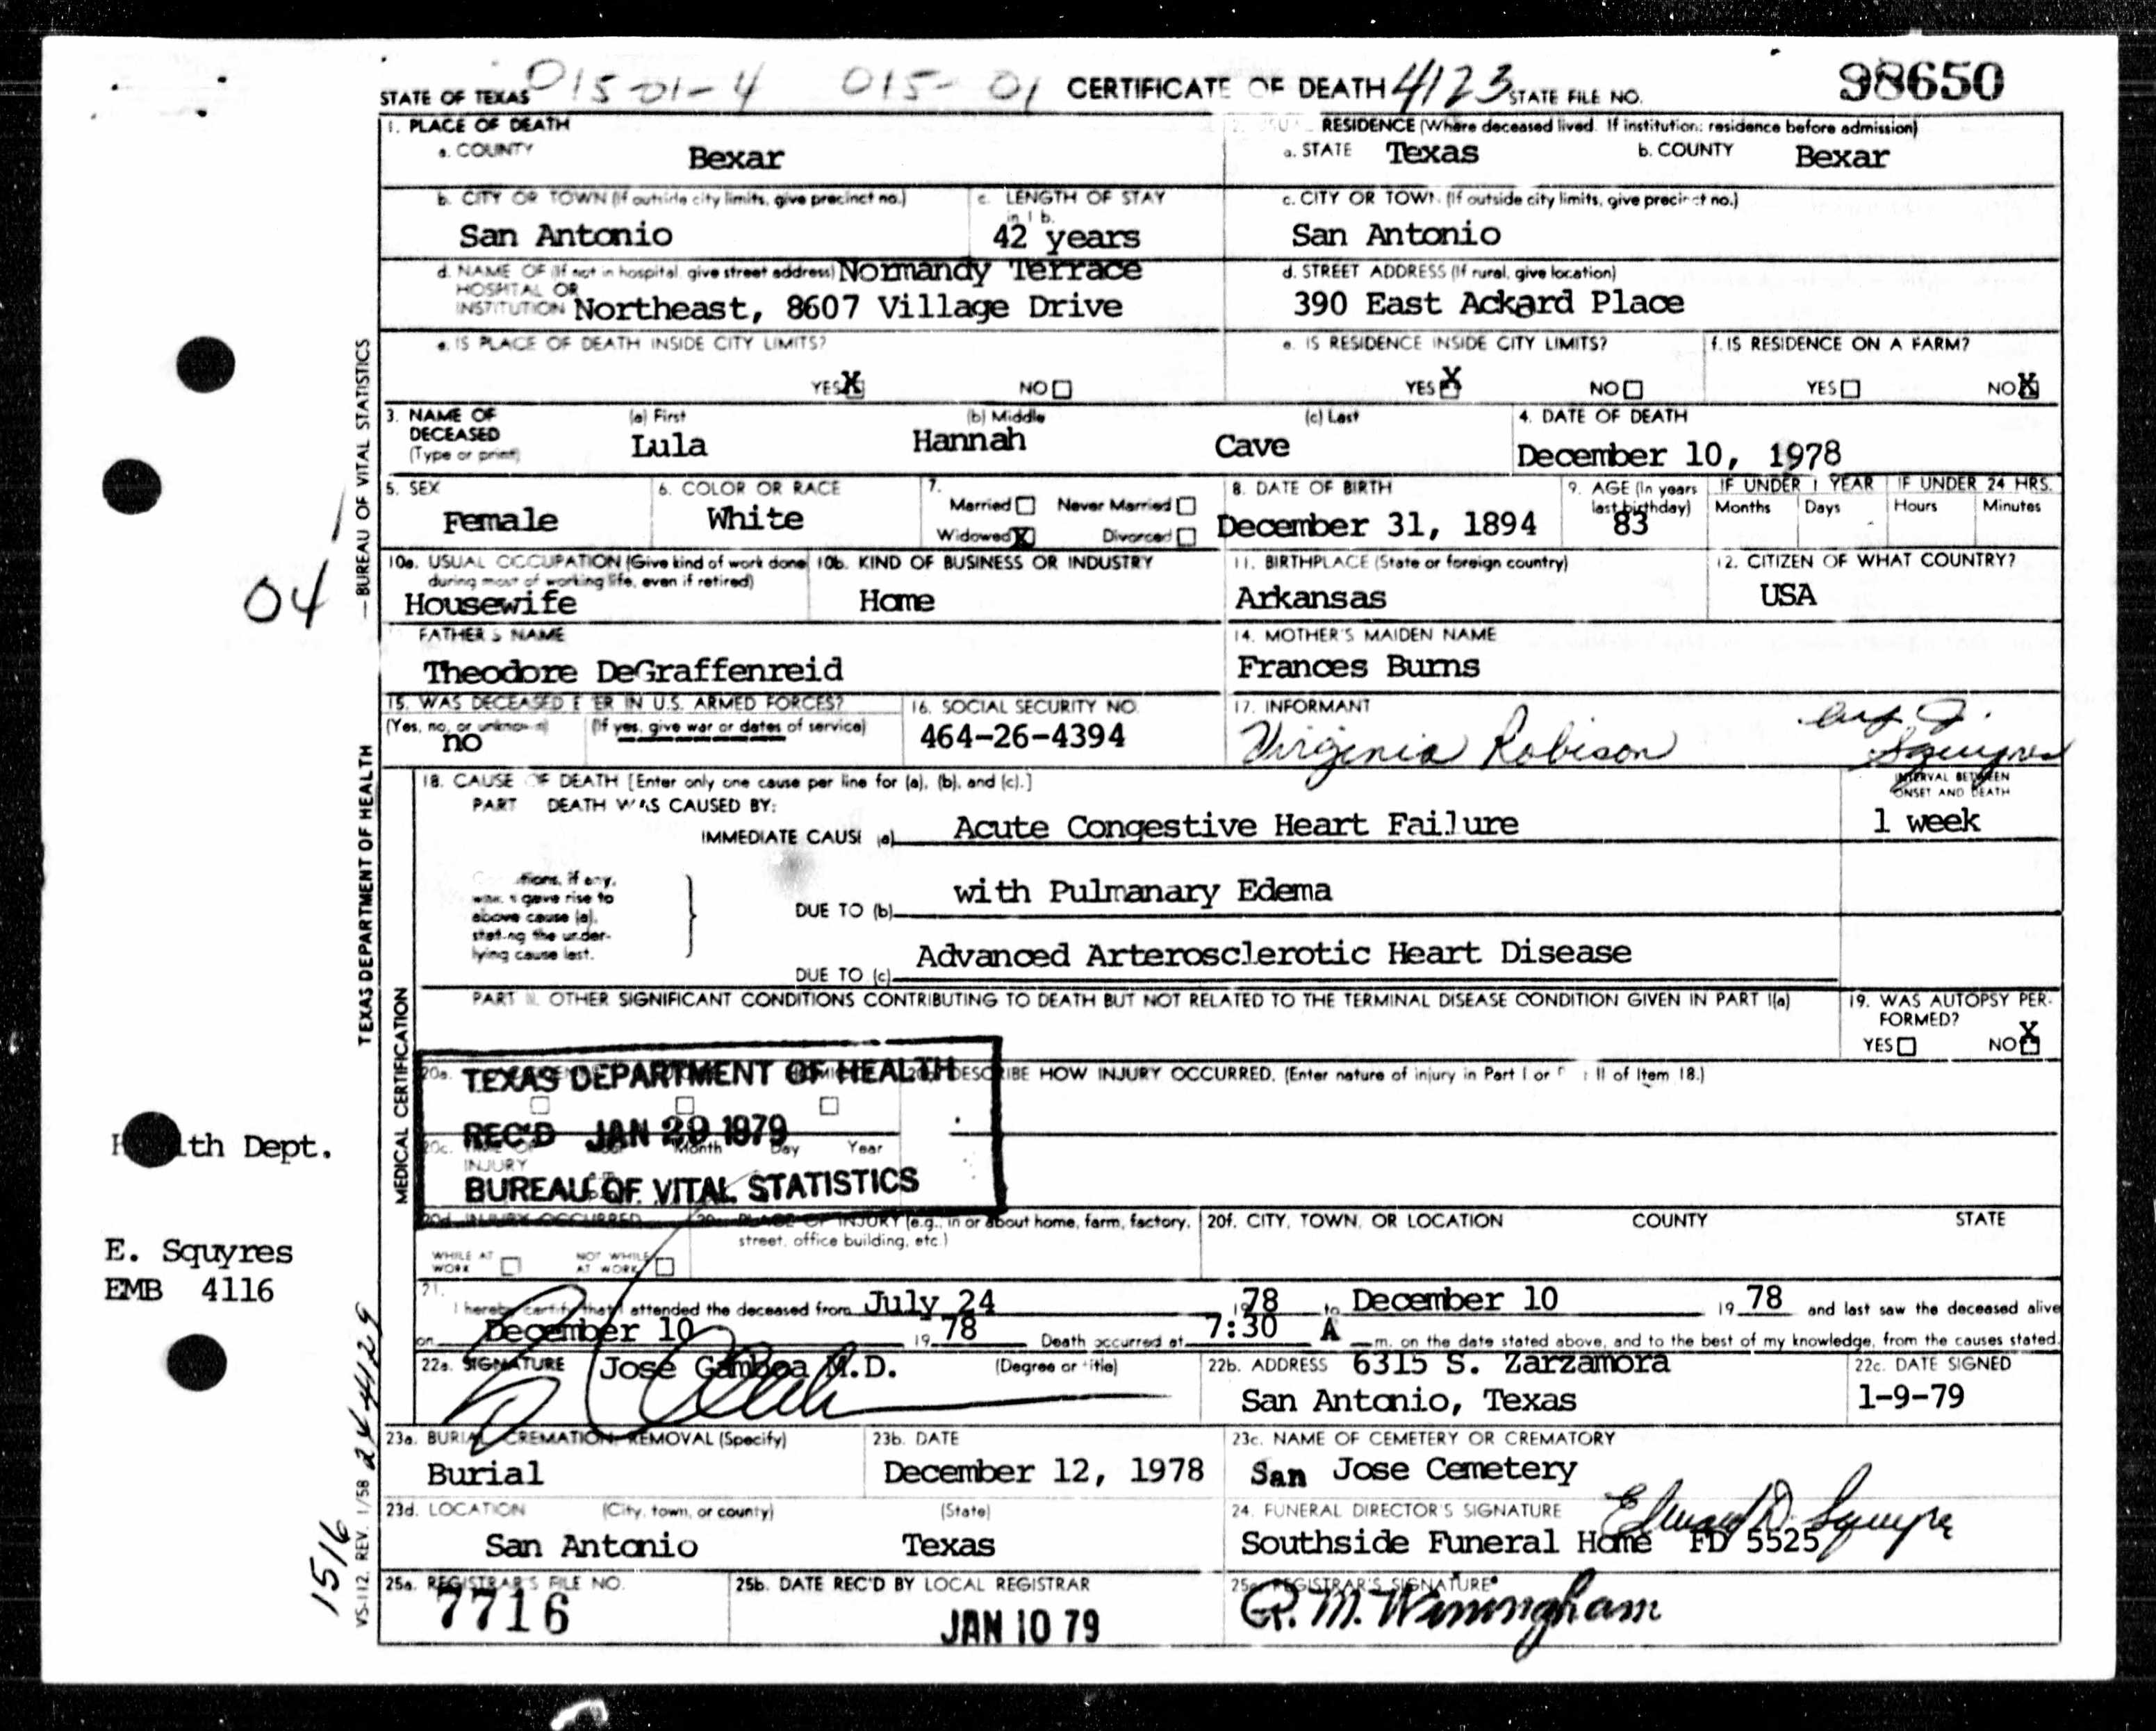 STATE OF TEXAS 015-01-4 015-01 CERTIFICATE OF DEATH 4123 STATE FILE NO. 98650
1. PLACE OF DEATH
a. COUNTY Bexar
RESIDENCE (Where deceased lived. If institution: residence before admission)
a. STATE Texas b. COUNTY Bexar
b. CITY OR TOWN (If outside city limits, give precinct no.)
San Antonio
c. LENGTH OF STAY in 1 b.
42 years
c. CITY OR TOWN (If outside city limits, give precinct no.)
San Antonio
d. NAME OF (If not in hospital, give street address) Normandy Terrace
HOSPITAL OR
INSTITUTION Northeast, 8607 Village Drive
d. STREET ADDRESS (If rural, give location)
390 East Ackard Place
e. IS PLACE OF DEATH INSIDE CITY LIMITS?
YES X NO
e. IS RESIDENCE INSIDE CITY LIMITS?
YES X NO
f. IS RESIDENCE ON A FARM?
YES NO X
3. NAME OF DECEASED (Type or print)
(a) First Lula
(b) Middle Hannah
(c) Last Cave
4. DATE OF DEATH
December 10, 1978
5. SEX
Female
6. COLOR OR RACE
White
7. Married Never Married
Widowed X Divorced
8. DATE OF BIRTH
December 31, 1894
9. AGE (In years last birthday)
83
IF UNDER 1 YEAR
Months Days
IF UNDER 24 HRS.
Hours Minutes
10a. USUAL OCCUPATION (Give kind of work done during most of working life, even if retired)
Housewife
10b. KIND OF BUSINESS OR INDUSTRY
Home
11. BIRTHPLACE (State or foreign country)
Arkansas
12. CITIZEN OF WHAT COUNTRY?
USA
FATHER'S NAME
Theodore DeGraffenreid
14. MOTHER'S MAIDEN NAME
Frances Burns
15. WAS DECEASED E ER IN U.S. ARMED FORCES?
(Yes, no, or unknown) (If yes, give war or dates of service)
no
16. SOCIAL SECURITY NO.
464-26-4394
17. INFORMANT
Virginia Robison
Squyres
18. CAUSE OF DEATH [Enter only one cause per line for (a), (b), and (c).]
PART DEATH WAS CAUSED BY:
INTERVAL BETWEEN ONSET AND DEATH
IMMEDIATE CAUSE (a) Acute Congestive Heart Failure
1 week
tions, if any,
gave rise to
above cause (a),
stating the under-
lying cause last.
DUE TO (b) with Pulmanary Edema
DUE TO (c) Advanced Arterosclerotic Heart Disease
PART II. OTHER SIGNIFICANT CONDITIONS CONTRIBUTING TO DEATH BUT NOT RELATED TO THE TERMINAL DISEASE CONDITION GIVEN IN PART I(a)
19. WAS AUTOPSY PER-
FORMED?
YES NO X
20a.
DESCRIBE HOW INJURY OCCURRED. (Enter nature of injury in Part I or II of Item 18.)
TEXAS DEPARTMENT OF HEALTH
REC'D JAN 29 1979
BUREAU OF VITAL STATISTICS
20c. TIME OF INJURY Month Day Year
20d. INJURY OCCURRED
WHILE AT WORK NOT WHILE AT WORK
PLACE OF INJURY (e.g., in or about home, farm, factory, street, office building, etc.)
20f. CITY, TOWN, OR LOCATION COUNTY STATE
21. I hereby certify that I attended the deceased from July 24 1978 to December 10 19 78 and last saw the deceased alive
on December 10 19 78 Death occurred at 7:30 A m. on the date stated above, and to the best of my knowledge, from the causes stated.
22a. SIGNATURE Jose Gamboa M.D. (Degree or title)
22b. ADDRESS 6315 S. Zarzamora
San Antonio, Texas
22c. DATE SIGNED
1-9-79
23a. BURIAL, CREMATION, REMOVAL (Specify)
Burial
23b. DATE
December 12, 1978
23c. NAME OF CEMETERY OR CREMATORY
San Jose Cemetery
23d. LOCATION (City, town, or county) (State)
San Antonio Texas
24. FUNERAL DIRECTOR'S SIGNATURE
Southside Funeral Home FD 5525
25a. REGISTRAR'S FILE NO.
7716
25b. DATE REC'D BY LOCAL REGISTRAR
JAN 10 79
REGISTRAR'S SIGNATURE
TEXAS DEPARTMENT OF HEALTH — BUREAU OF VITAL STATISTICS
MEDICAL CERTIFICATION
VS-112, REV. 1/58
1516
04
lth Dept.
E. Squyres
EMB 4116